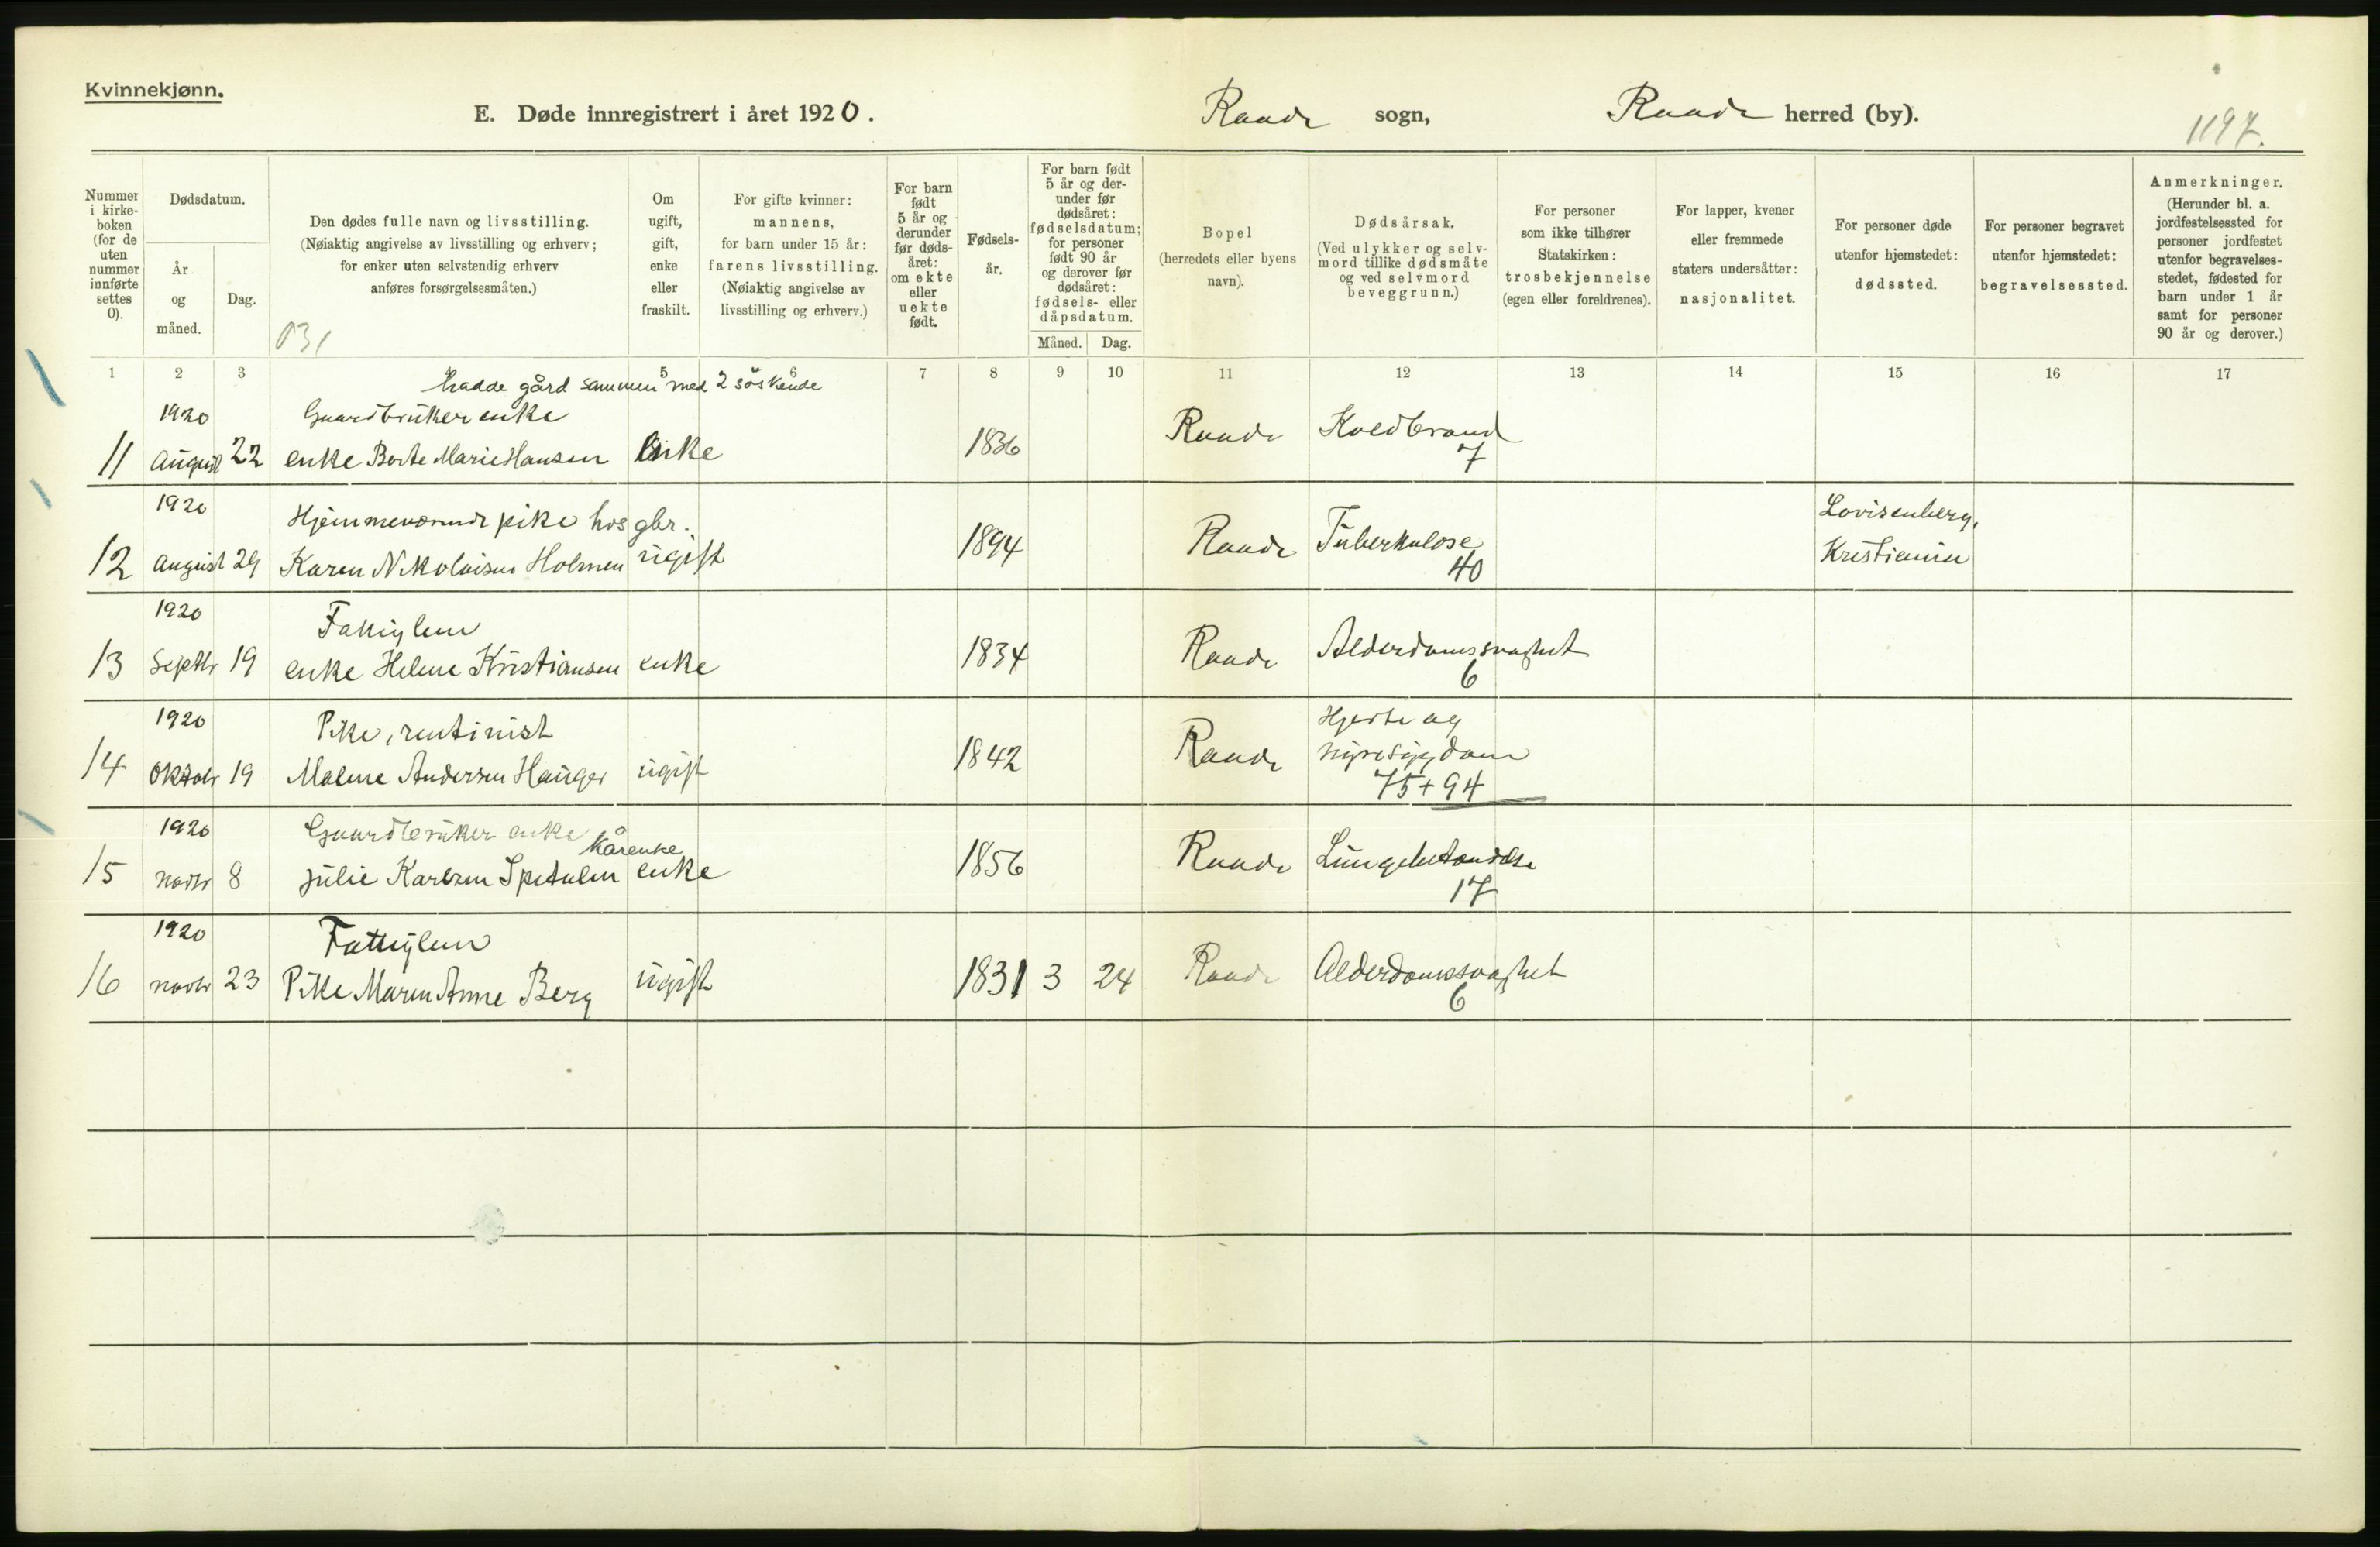 Kvinnekjønn.
E. Døde innregistrert i året 1920. Raade sogn, Raade herred (by).
1197.
Nummer i kirke- boken (for de uten nummer innførte settes 0).
Dødsdatum.
År og måned.
Dag.
Den dødes fulle navn og livsstilling.
(Nøiaktig angivelse av livsstilling og erhverv;
for enker uten selvstendig erhverv
anføres forsørgelsesmåten.)
031
Om ugift, gift, enke eller fraskilt.
For gifte kvinner: mannens,
for barn under 15 år:
farens livsstilling.
(Nøiaktig angivelse av
livsstilling og erhverv.)
For barn født 5 år og derunder før døds- året: om ekte eller uekte født.
Fødsels- år.
For barn født 5 år og der- under før dødsåret: fødselsdatum; for personer født 90 år og derover før dødsåret: fødsels- eller dåpsdatum.
Måned. Dag.
Bopel
(herredets eller byens
navn).
Dødsårsak.
(Ved ulykker og selv-
mord tillike dødsmåte
og ved selvmord
beveggrunn.)
For personer
som ikke tilhører
Statskirken:
trosbekjennelse
(egen eller foreldrenes).
For lapper, kvener
eller fremmede
staters undersåtter:
nasjonalitet.
For personer døde
utenfor hjemstedet:
dødssted.
For personer begravet
utenfor hjemstedet:
begravelsessted.
Anmerkninger.
(Herunder bl. a.
jordfestelsessted for
personer jordfestet
utenfor begravelses-
stedet, fødested for
barn under 1 år
samt for personer
90 år og derover.)
1 2 3 5 6 7 8 9 10 11 12 13 14 15 16 17
hadde gård sammen med 2 søskende
1920 Gaardbruker enke
11 August 22 enke Berte Marie Hansen Enke 1836 Raade Koldbrand
7
1920 Hjemmeværende pike hos gbr. Lovisenberg,
12 August 29 Karen Nikolaisen Holmen ugift 1894 Raade Tuberkulose Kristiania
40
1920 Fattiglem
13 Septbr 19 enke Helene Kristiansen enke 1834 Raade Alderdomssvaghet
6
1920 Pike, rentinist Hjerte og
14 Oktobr 19 Malene Andersen Hauger ugift 1842 Raade nyresygdom
75 + 94
1920 Gaardbruker enke
Kårenke
15 Novbr 8 Julie Karlsen Spetalen enke 1856 Raade Lungebetændelse
17
1920 Fattiglem
16 Novbr 23 Pike Maren Anne Berg ugift 1831 3 24 Raade Alderdomssvaghet
6